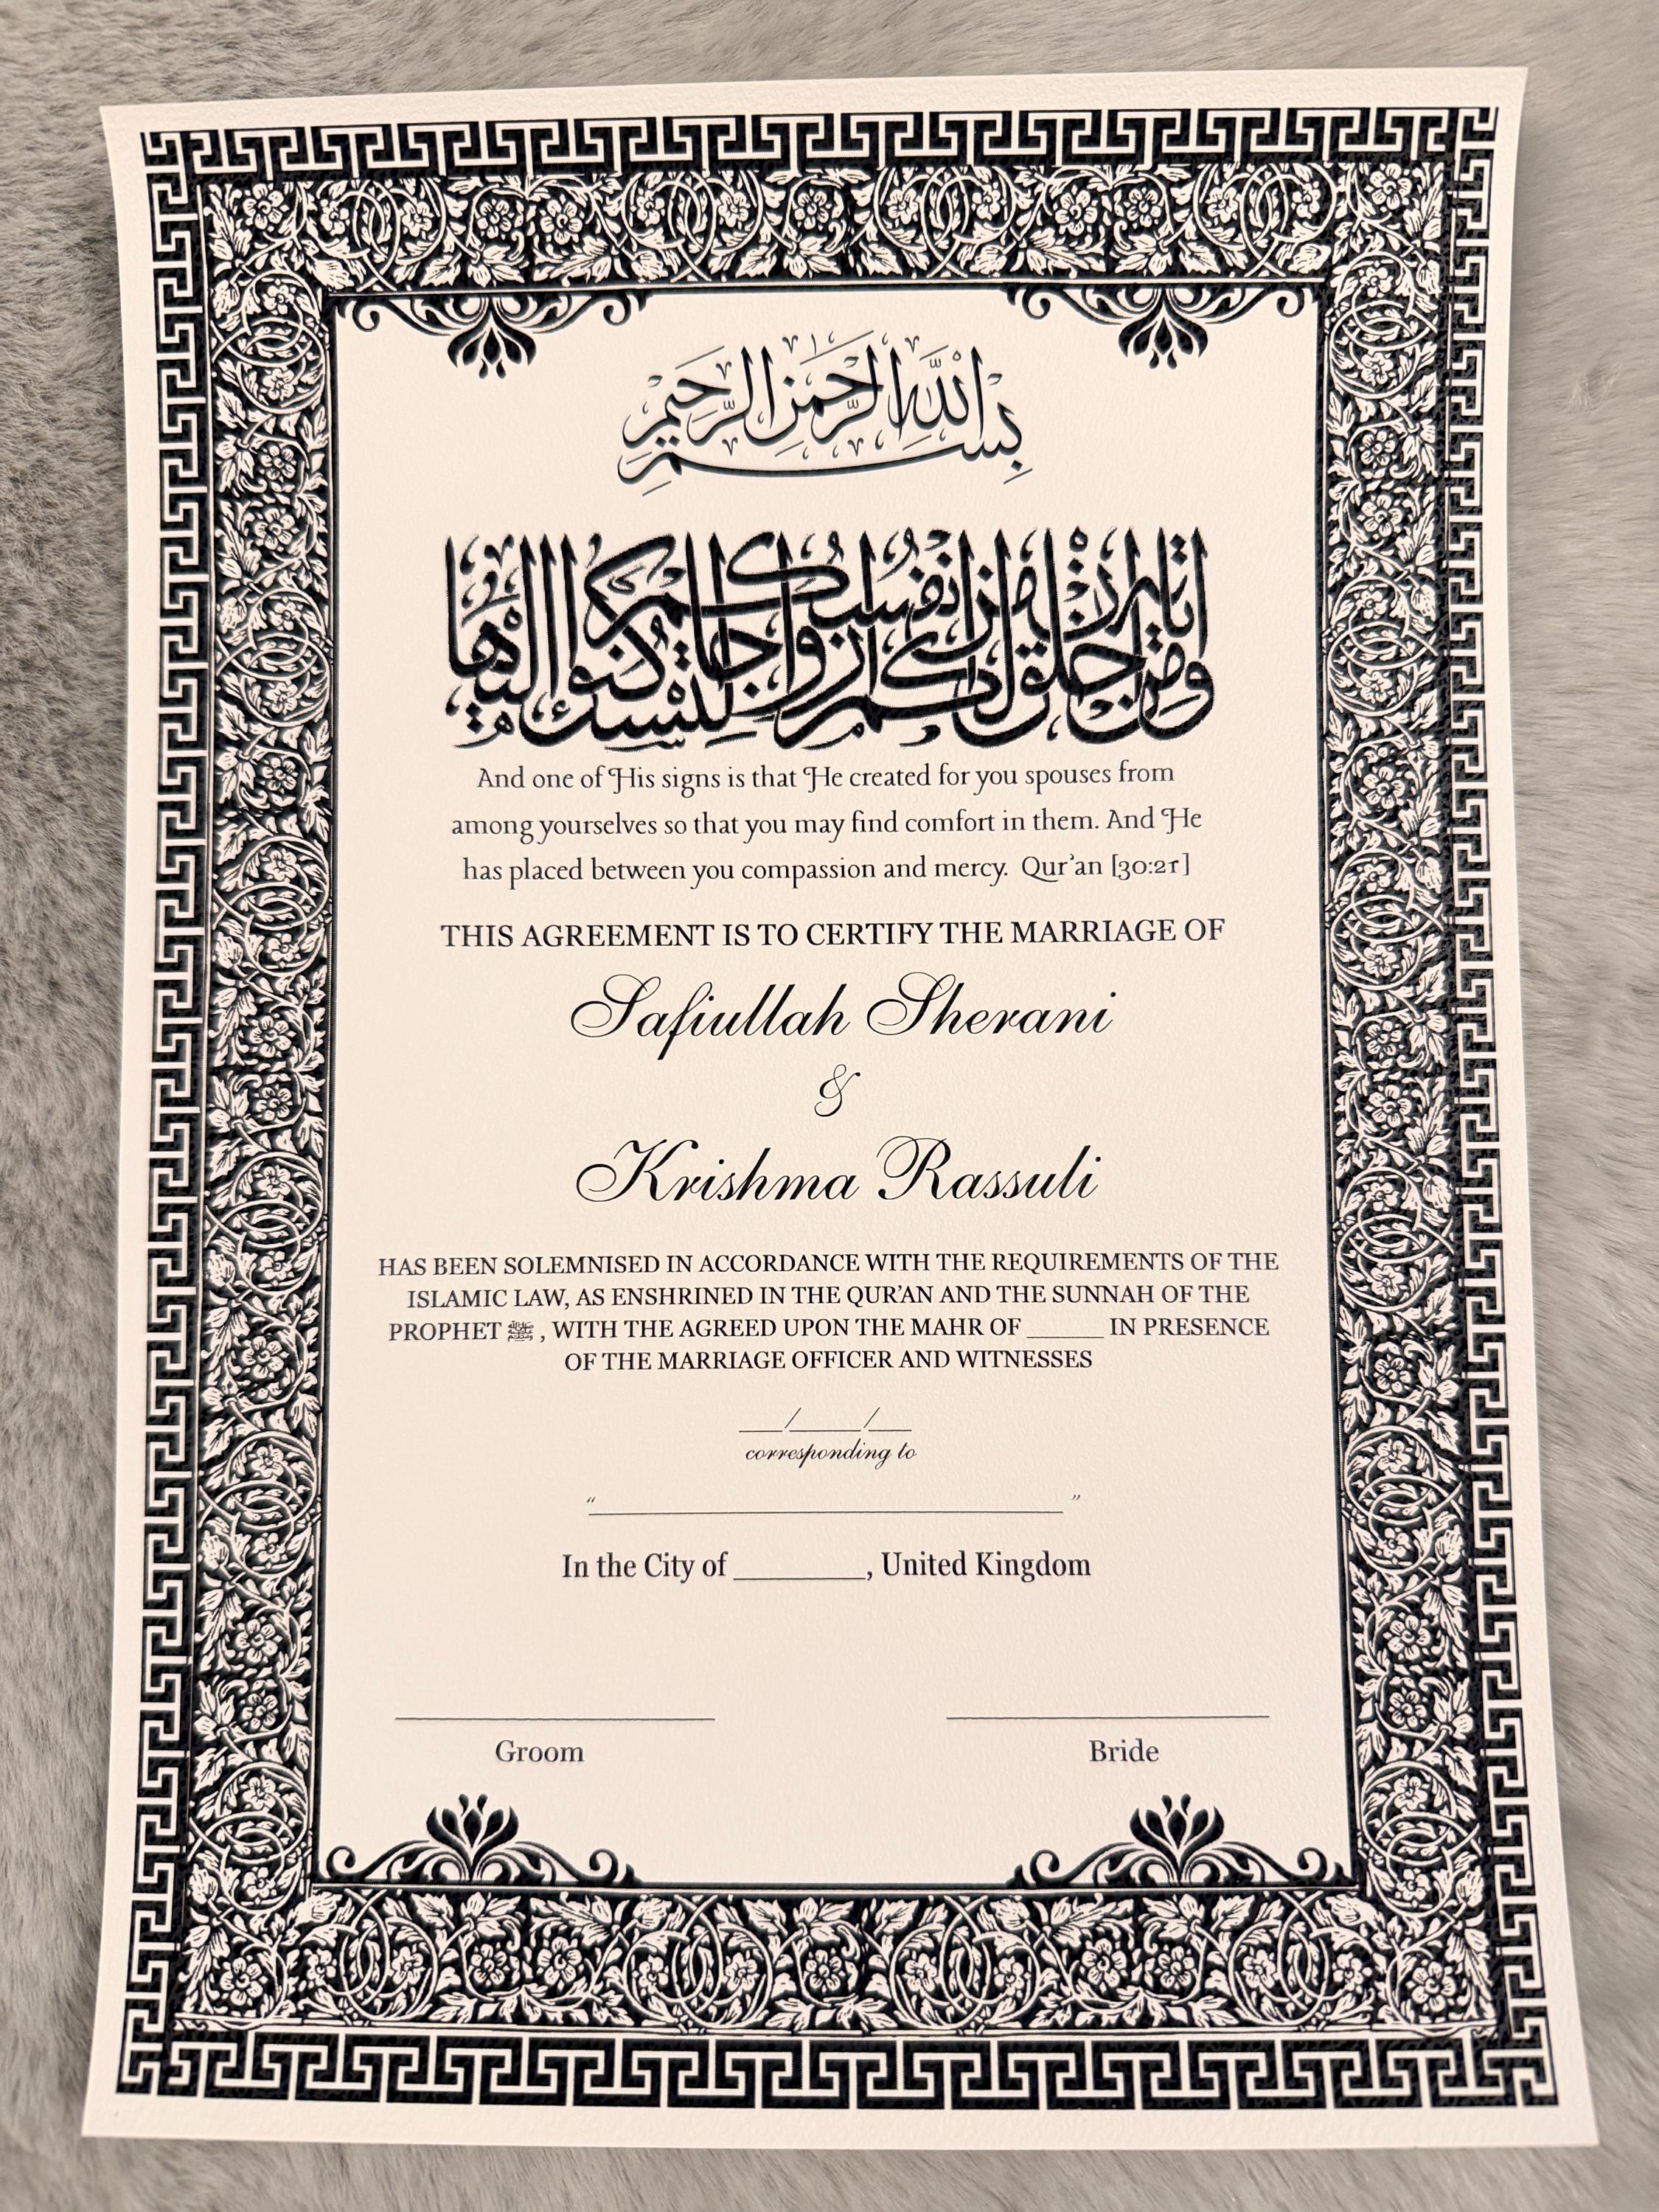 بسم الله الرحمن الرحيم
ومن آياته أن خلق لكم من أنفسكم أزواجا لتسكنوا إليها
And one of His signs is that He created for you spouses from
among yourselves so that you may find comfort in them. And He
has placed between you compassion and mercy. Qur’an [30:21]
THIS AGREEMENT IS TO CERTIFY THE MARRIAGE OF
Safiullah Sherani
&
Krishma Rassuli
HAS BEEN SOLEMNISED IN ACCORDANCE WITH THE REQUIREMENTS OF THE
ISLAMIC LAW, AS ENSHRINED IN THE QUR’AN AND THE SUNNAH OF THE
PROPHET ﷺ , WITH THE AGREED UPON THE MAHR OF ______ IN PRESENCE
OF THE MARRIAGE OFFICER AND WITNESSES
___/_____/___
corresponding to
“______________________________”
In the City of _________, United Kingdom
Groom
Bride